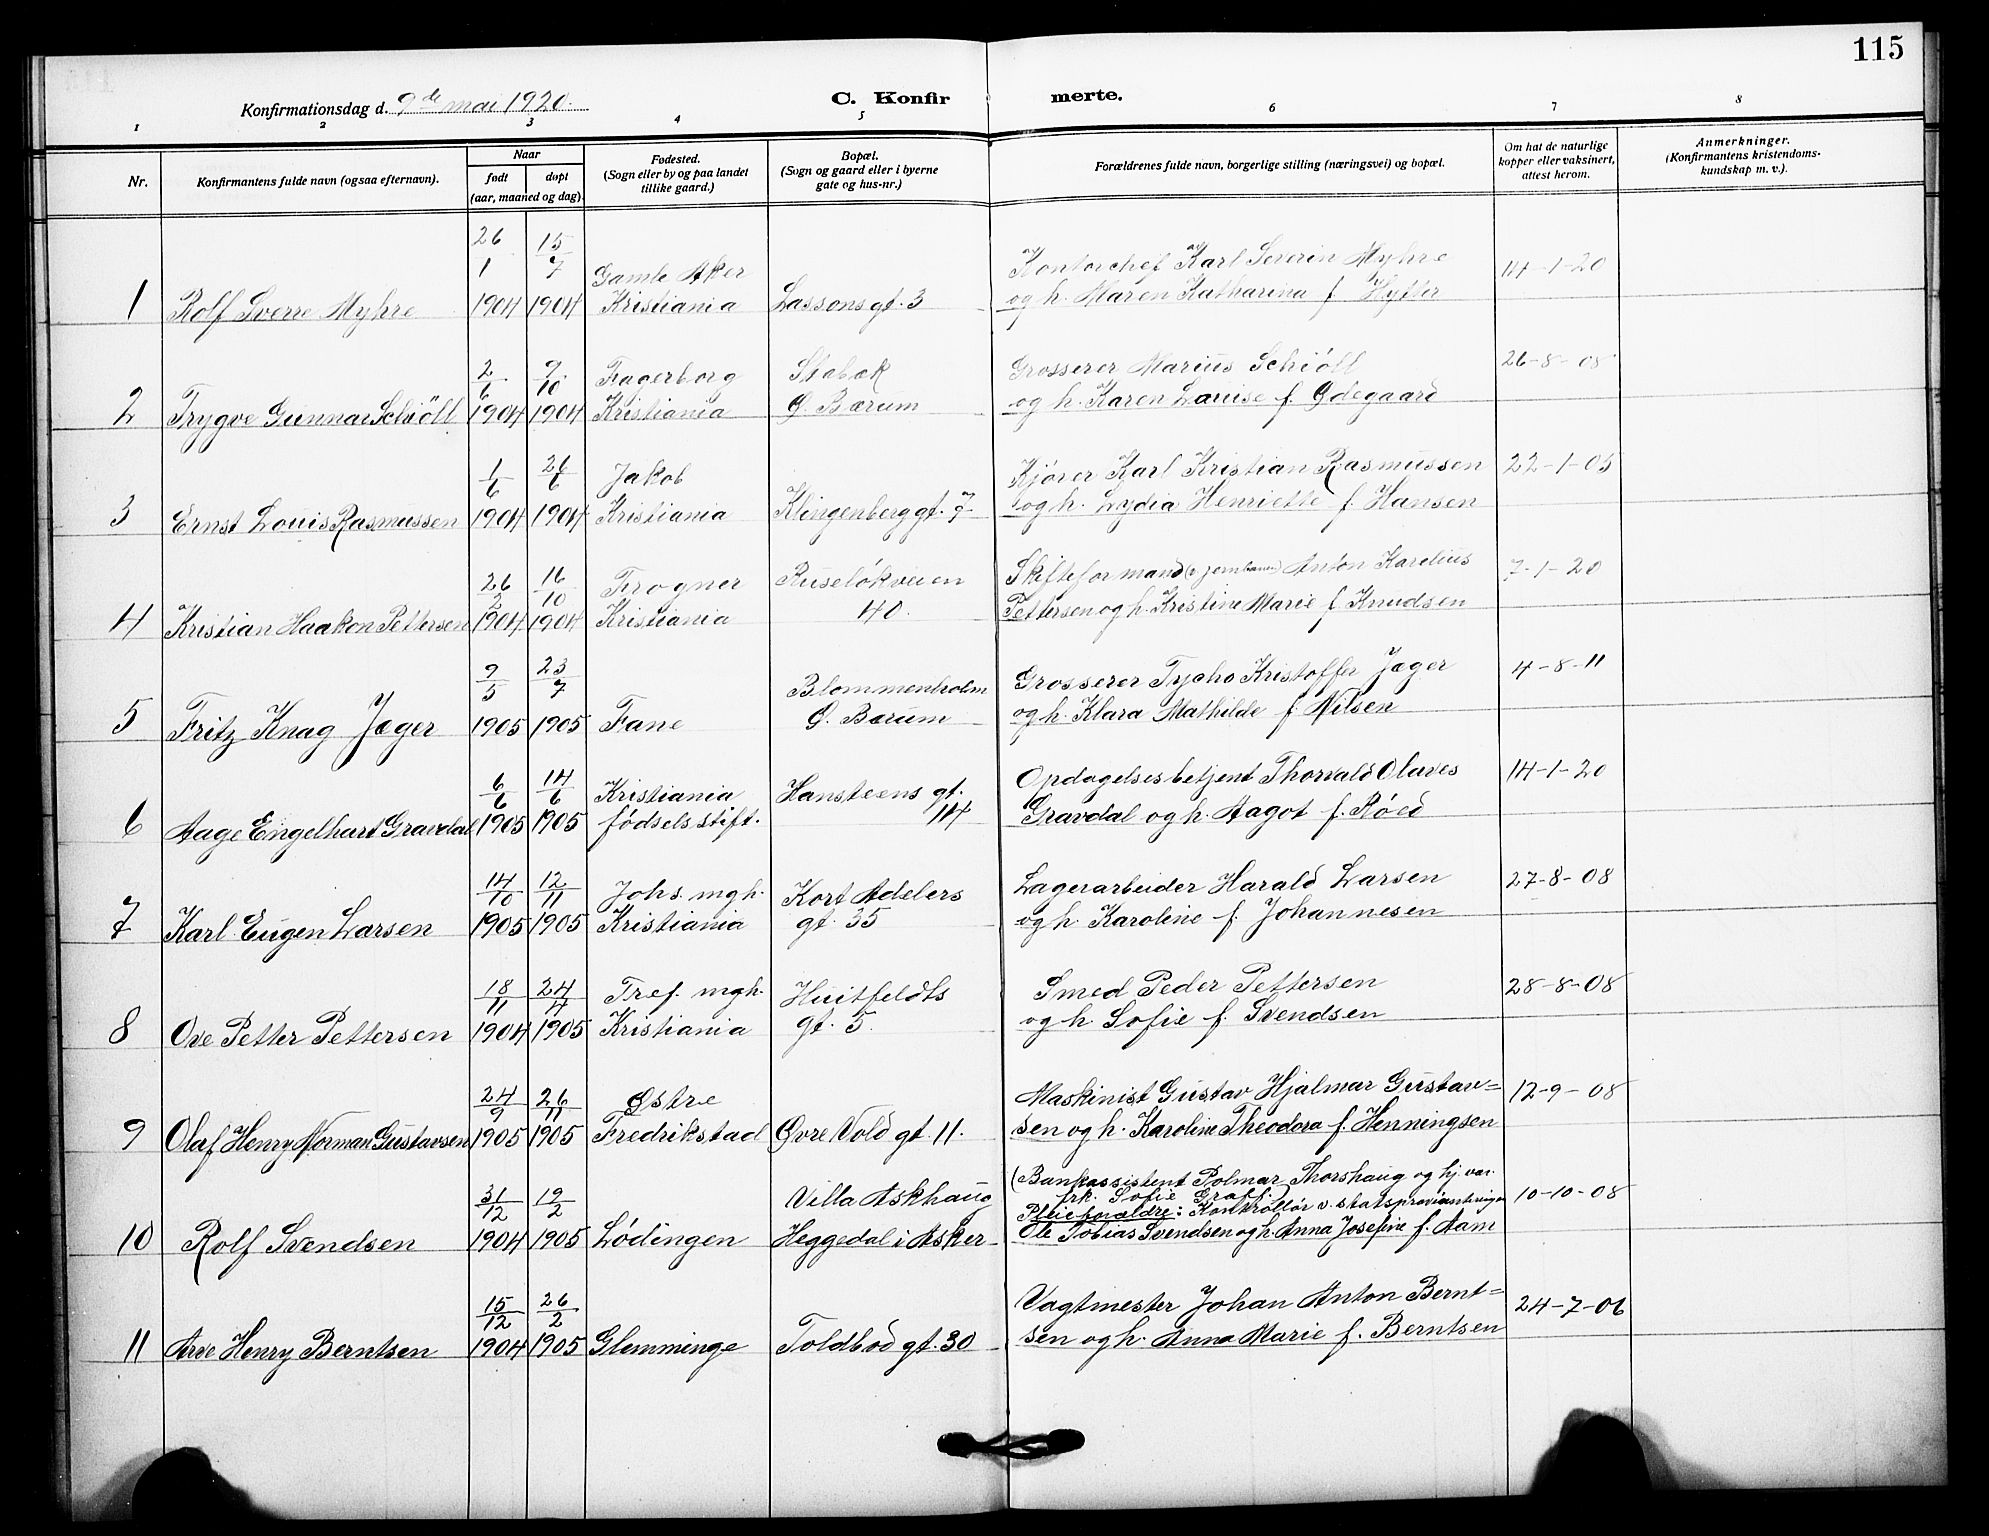 115
Konfirmationsdag d. 9de mai 1920.
C. Konfirmerte.
1 2 3 4 5 6 7 8
Nr.
Konfirmantens fulde navn (ogsaa efternavn).
Naar
født
døpt
(aar, maaned og dag).
Fødested.
(Sogn eller by og paa landet
tillike gaard.)
Bopæl.
(Sogn og gaard eller i byerne
gate og hus-nr.)
Forældrenes fulde navn, borgerlige stilling (næringsvei) og bopæl.
Om hat de naturlige
kopper eller vaksinert,
attest herom.
Anmerkninger.
(Konfirmantens kristendoms-
kundskap m. v.).
26 15
1 7 Gamle Aker Kontorchef Karl Severin Myhre 14-1-20
1 Rolf Sverre Myhre 1904 1904 Kristiania Lassons gt. 3 og h. Maren Katharina f. Hytter
2/6 9/10 Fagerborg Stabæk Grosserer Marius Schiöll 26-8-08
2 Trygve Gunnar Schiöll 1904 1904 Kristiania Ø. Bærum og h. Karen Lauise f. Ødegaard
1/6 26/6 Jakob Kjører Karl Kristian Rasmussen 22-1-05
3 Ernst Louis Rasmussen 1904 1904 Kristiania Klingenberggt. 7 og h. Lydia Henriette f. Hansen
26/2 16/10 Frogner Ruseløkveien Skifteformand (v. jernbanen) Anton Karelius 7-1-20
4 Kristian Haakon Pettersen 1904 1904 Kristiania 40. Pettersen og h. Kristine Marie f. Knudsen
9/5 23/7 Blommenholm Grosserer Tycho Kristoffer Jæger 4-8-11
5 Fritz Knag Jæger 1905 1905 Fane Ø. Bærum og h. Klara Mathilde f. Nilsen
6/6 14/6 Kristiania Hansteens gt. Opdagelsesbetjent Thorvald Olaves 14-1-20
6 Aage Engelhart Gravdal 1905 1905 fødselsstift. 14 Gravdal og h. Aagot f. Røed
14/10 12/11 Johs. mgh. Kort Adelers Lagerarbeider Harald Larsen 27-8-08
7 Karl Eugen Larsen 1905 1905 Kristiania gt. 35 og h. Karoline f. Johannesen
18/11 24/4 Tref. mgh. Huitfeldts Smed Peder Pettersen 28-8-08
8 Ove Petter Pettersen 1904 1905 Kristiania gt. 5. og h. Sofie f. Svendsen
24/9 26/11 Østre Maskinist Gustav Hjalmar Gustav= 12-9-08
9 Olaf Henry Norman Gustavsen 1905 1905 Fredrikstad Øvre Vold gt. 11. sen og h. Karoline Theodora f. Henningsen
31/12 19/2 Villa Askhaug (Bankassistent Polmar Thorshaug og hj. var. 10-10-08
frk. Sofie Graff.)
Pleieforældre: Kontrollør v. statsproviantering
10 Rolf Svendsen 1904 1905 Lødingen Heggedal i Asker Ole Tobias Svendsen og h. Anna Josefine f. Aam
15/12 26/2 Vagtmester Johan Anton Bernt= 24-7-06
11 Arve Henry Berntsen 1904 1905 Glemminge Toldbod gt. 30 sen og h. Anna Marie f. Berntsen